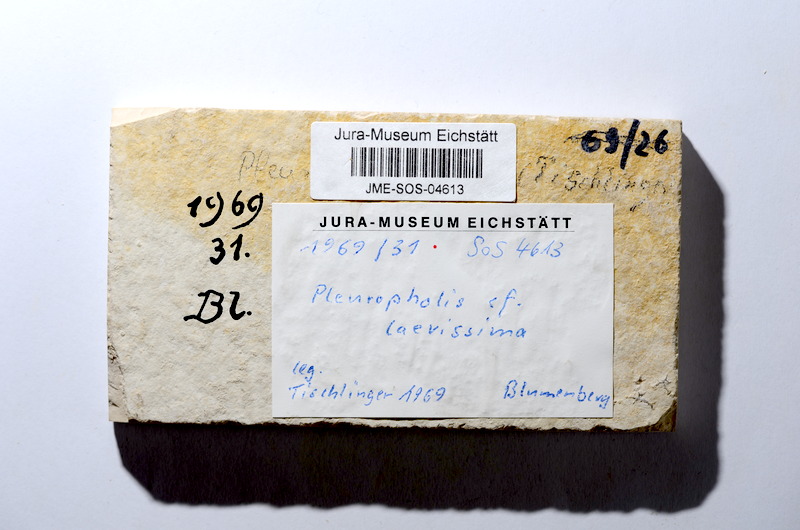 Jura-Museum Eichstätt
JME-SOS-04613
69/26
Tischlinger
1969
31.
Bl.
JURA-MUSEUM EICHSTÄTT
1969/31 • SoS 4613
Pleuropholis cf.
laevissima
leg.
Tischlinger 1969 Blumenberg